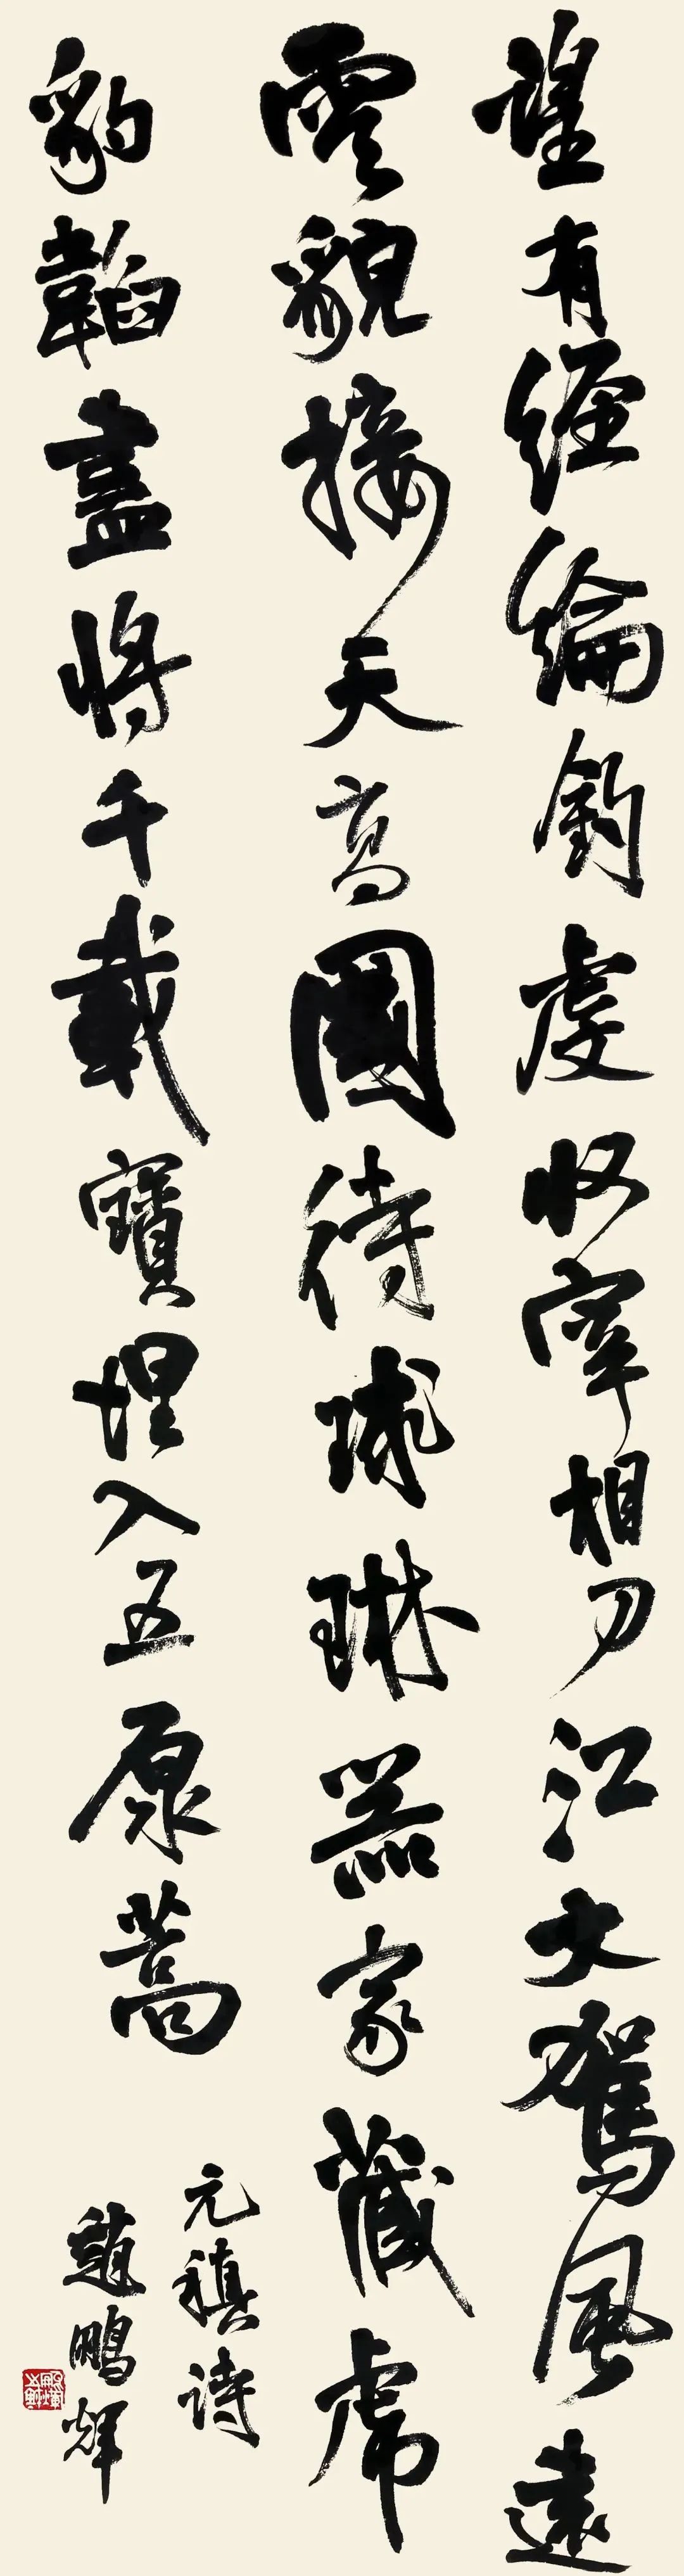 望有經綸釣虔收宰相刀江文駕風遠
雲貌接天高國待球琳器家藏虎
豹韜盡將千載寶埋入五原蒿
元稹詩
趙鵬輝